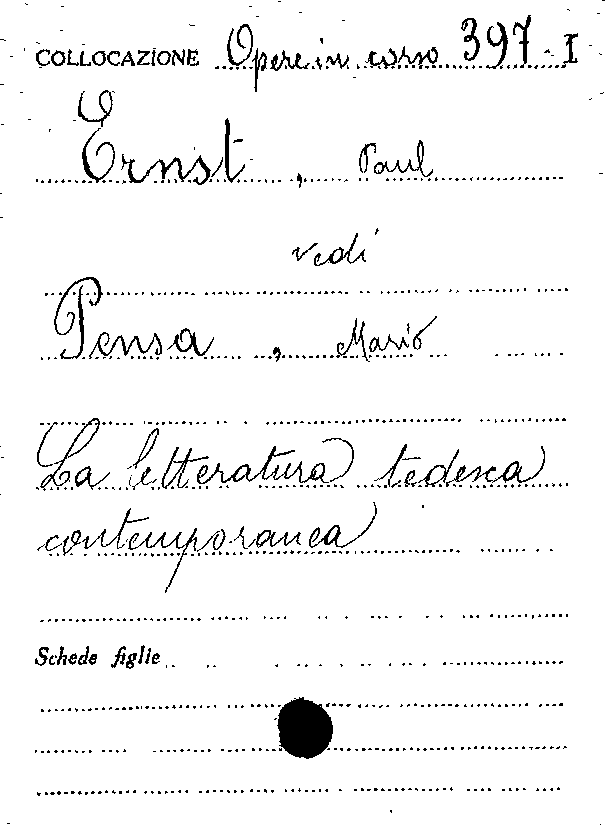 COLLOCAZIONE Opere in corso 397-I
Ernst, Paul
vedi
Pensa, Mario
La letteratura tedesca
contemporanea
Schede figlie